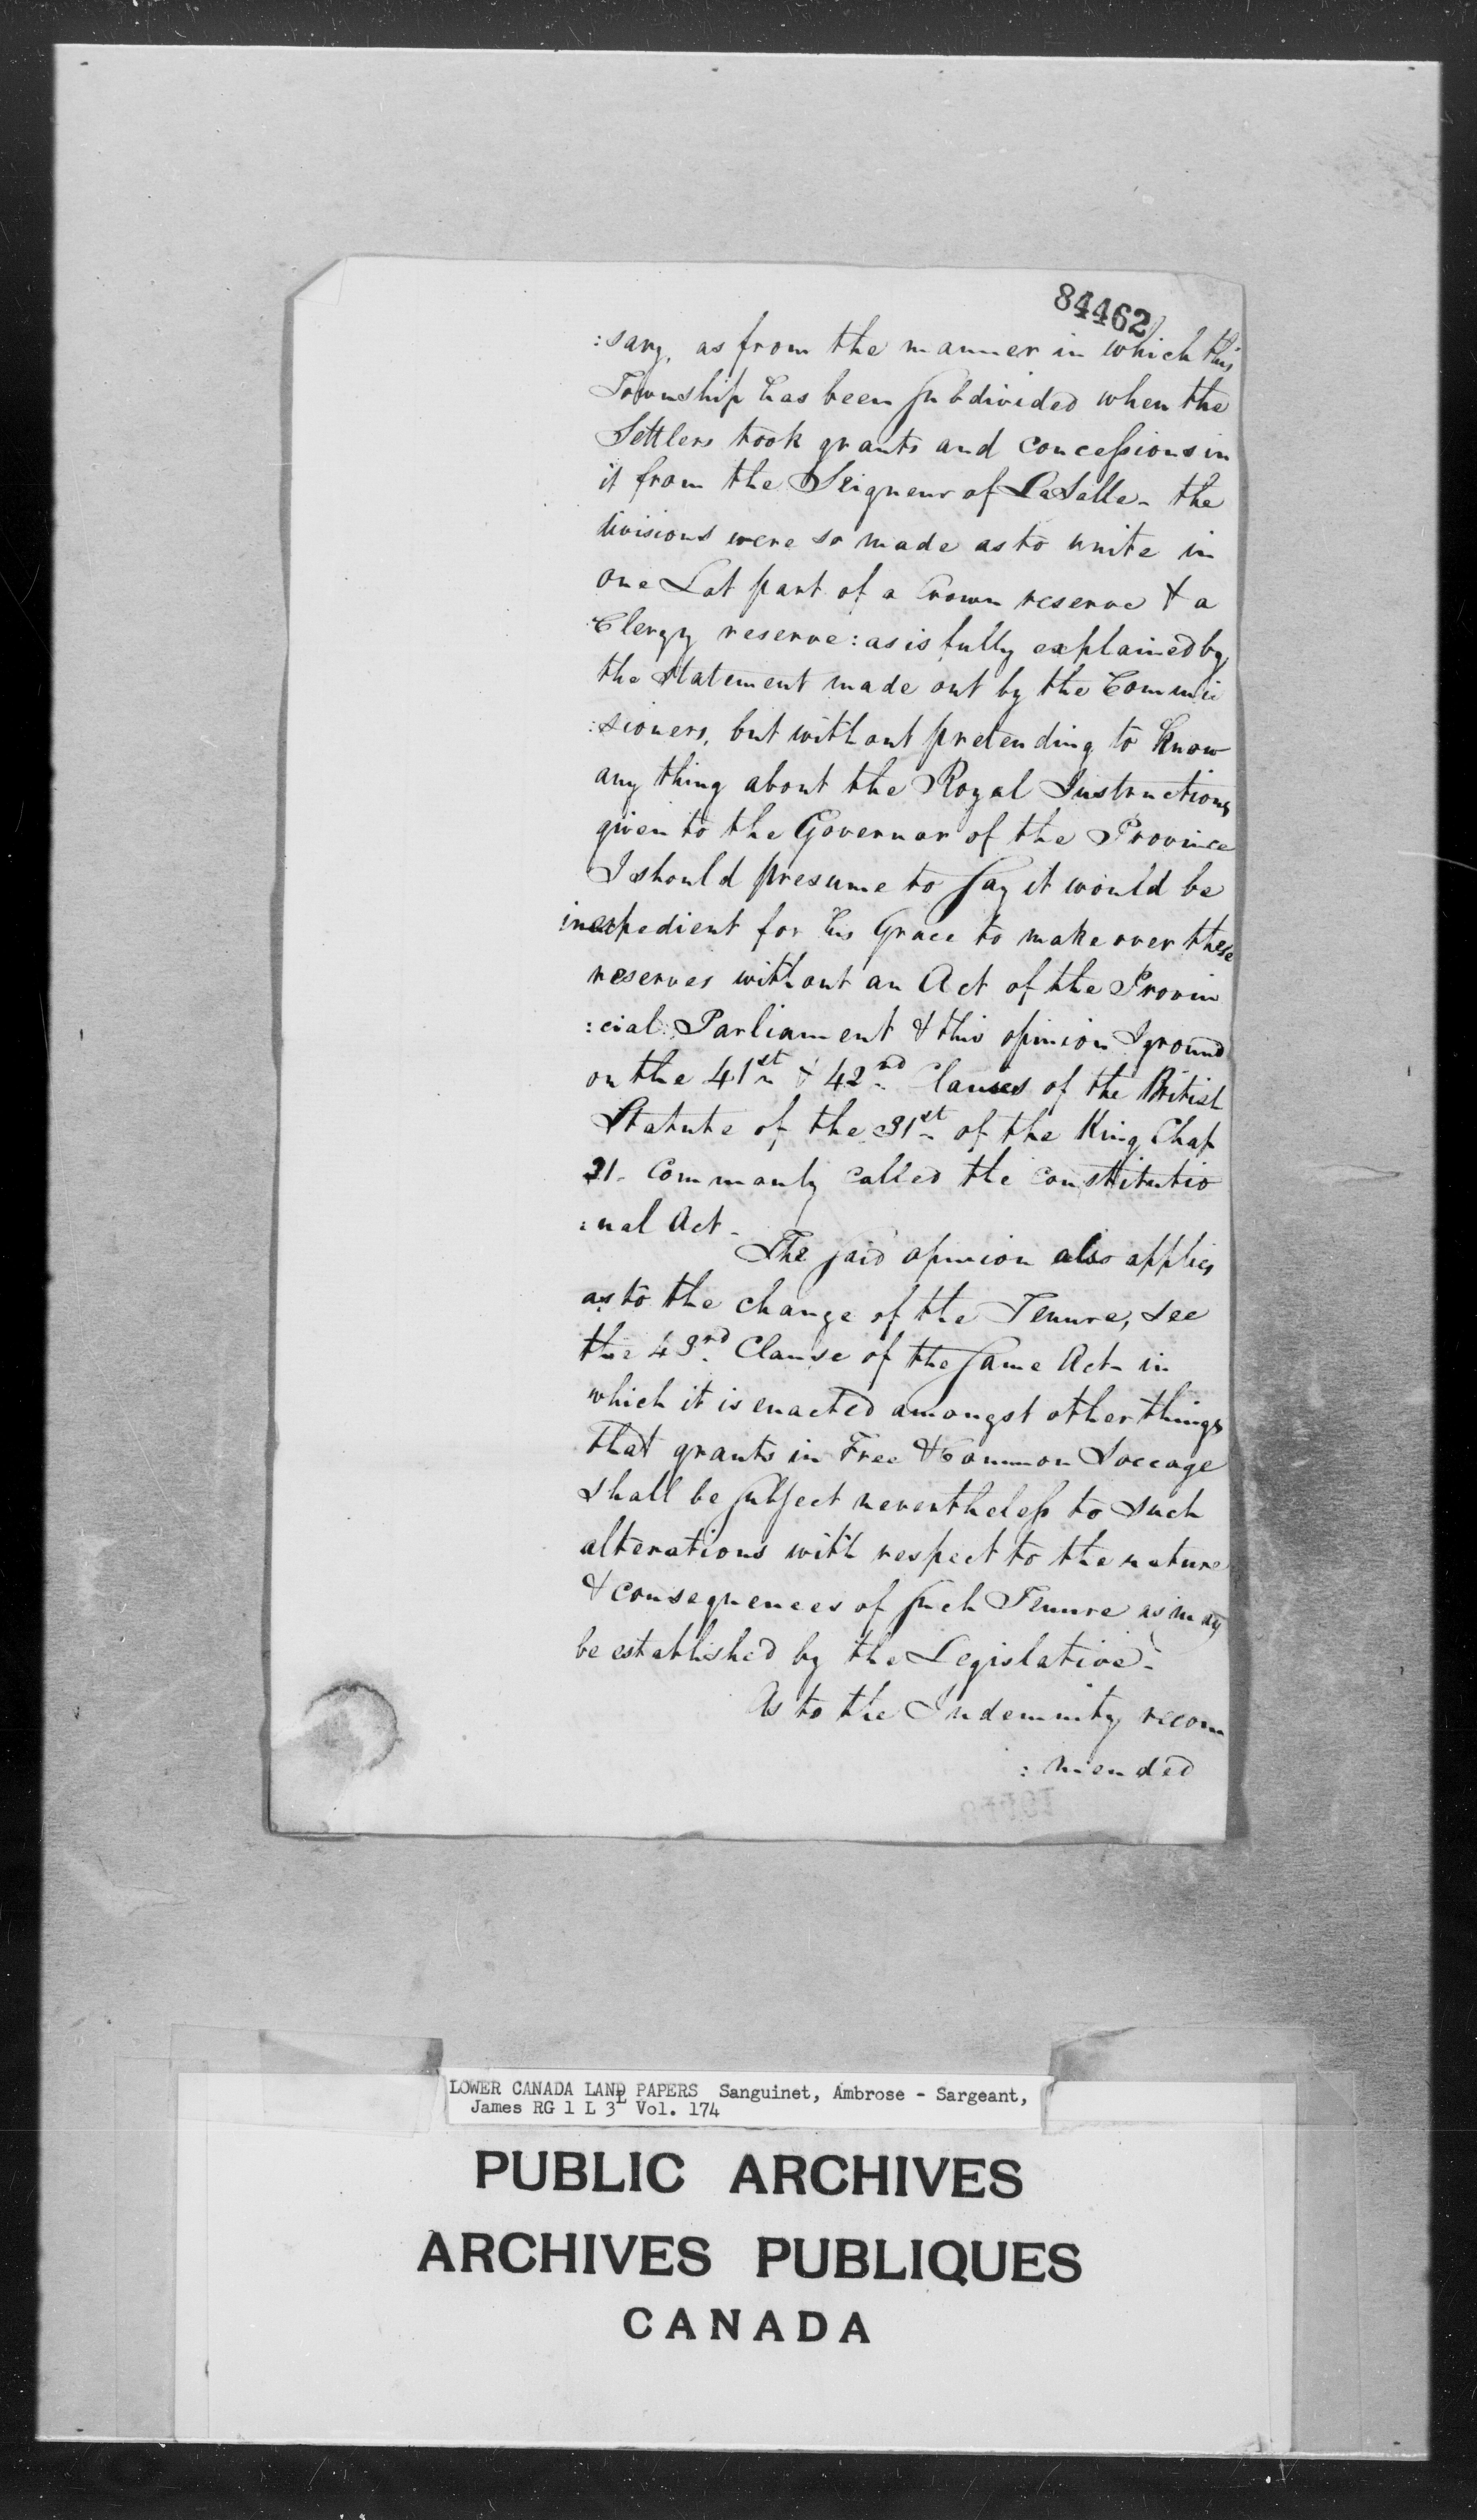 84462
:sary, as from the manner in which this
Township has been subdivided when the
Settlers took grants and concessions in
it from the Seigneur of LaSalle - the
divisions were so made as to unite in
one Lot part of a Crown reserve & a
Clergy reserve: as is fully explained by
the Statement made out by the Commis
:sioners, but without pretending to know
any thing about the Royal Instructions
given to the Governor of the Province
I should presume to say it would be
inexpedient for his Grace to make over these
reserves without an Act of the Provin
:cial Parliament & this opinion I ground
on the 41st & 42nd Clauses of the British
Statute of the 31st of the King Chap
31 - Commonly called the constitutio
:nal Act -
The said opinion also applies
as to the change of the Tenure, see
the 43rd Clause of the same Act - in
which it is enacted amongst other things
That grants in Free & Common Soccage
shall be subject nevertheless to such
alterations with respect to the nature
& consequences of such Tenure as may
be established by the Legislative -
As to the Indemnity recom
: mended
LOWER CANADA LAND PAPERS Sanguinet, Ambrose - Sargeant,
James RG 1 L 3L Vol. 174
PUBLIC ARCHIVES
ARCHIVES PUBLIQUES
CANADA